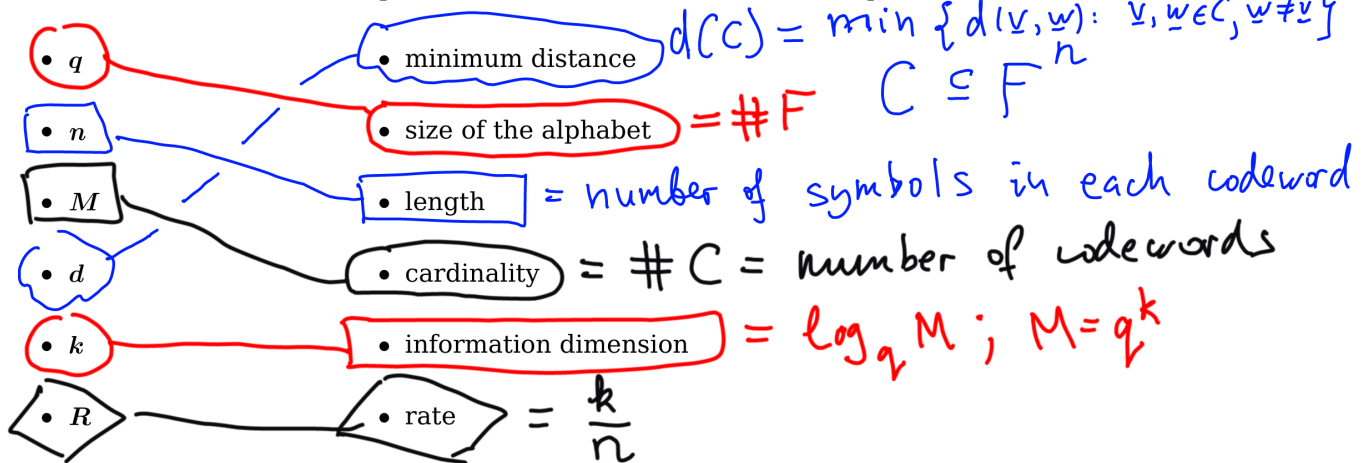 • q • minimum distance d(C) = min {d(v, w): v, w ∈ C, w ≠ v}
C ⊆ Fⁿ
• size of the alphabet = #F
• n
• M • length = number of symbols in each codeword
• d • cardinality = #C = number of codewords
• k • information dimension = log_q M ; M = q^k
• R • rate = k/n